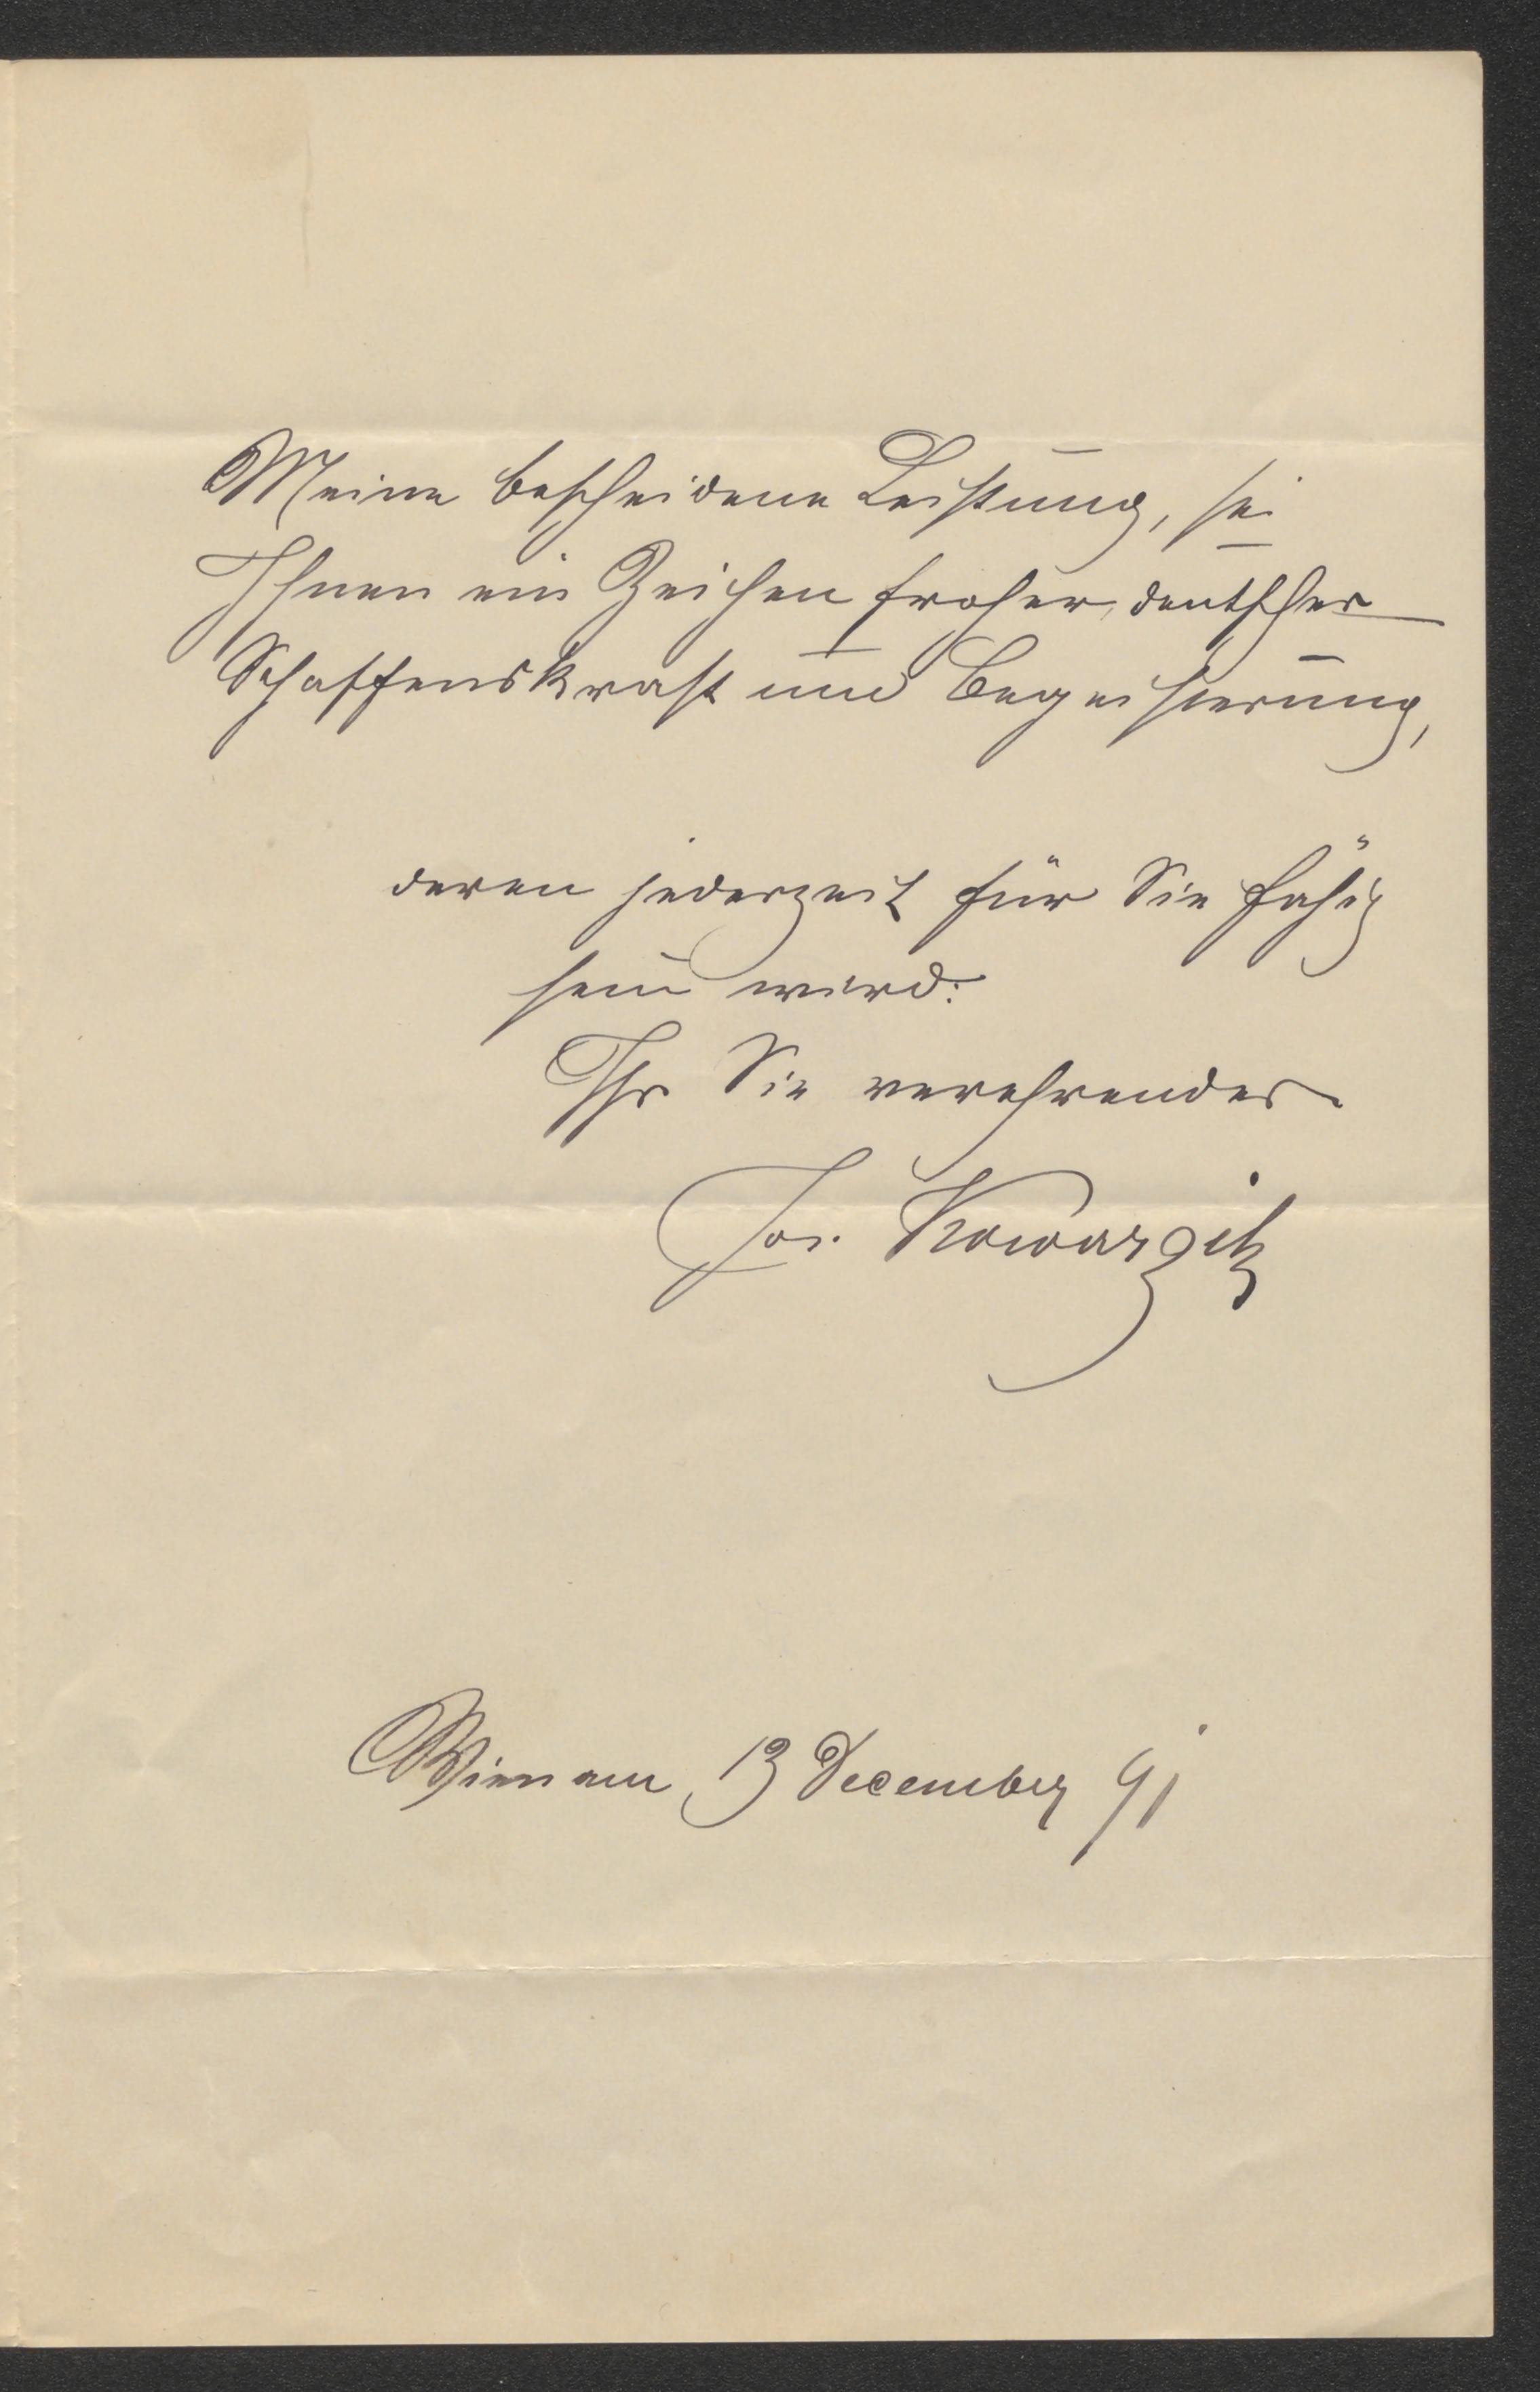 Meine bescheidene Leistung, sei
Ihnen ein Zeichen froher, deutscher
Schaffenskraft und Begeisterung,
deren jederzeit für Sie fähig
sein wird:
Ihr Sie verehrender
Jos. Kowarzik
Wien am 13 December 91